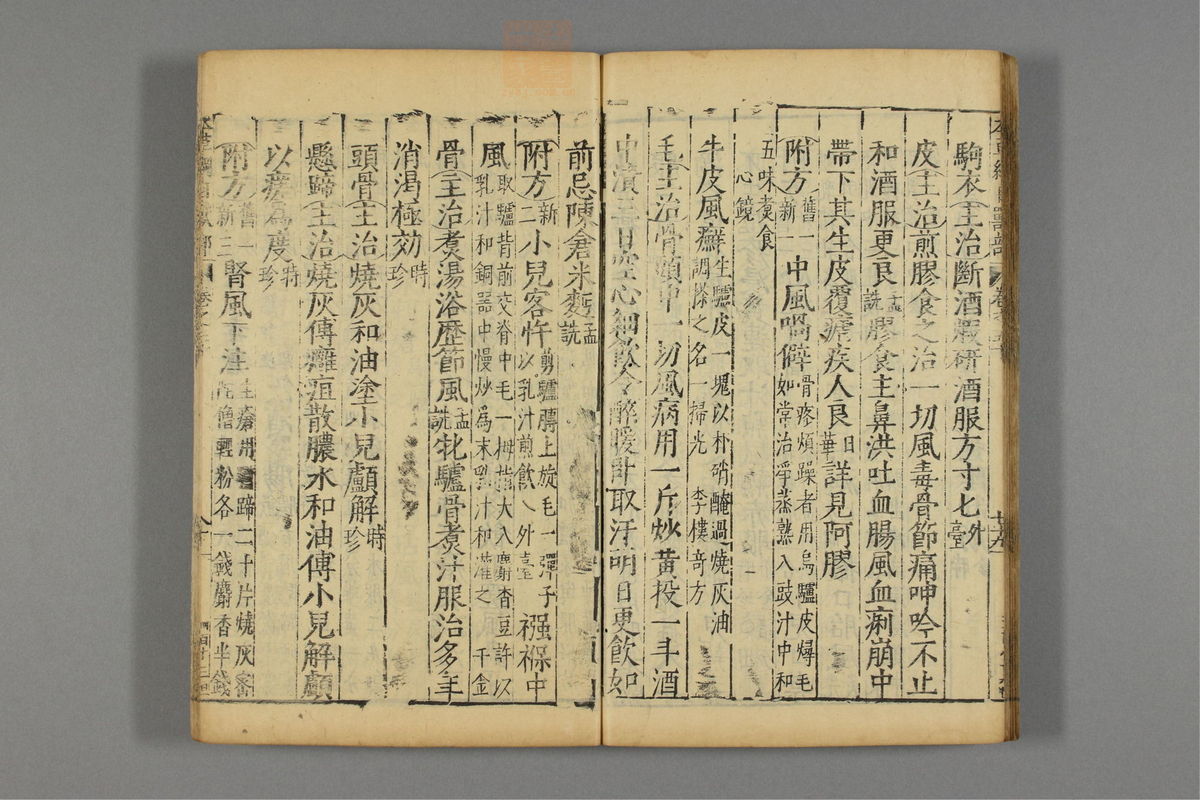 駒衣主治斷酒煆研酒服方寸匕外臺
皮主治煎膠食之治一切風毒骨節痛呻吟不止
和酒服更良孟詵膠食主鼻洪吐血腸風血痢崩中
帶下其生皮覆瘧疾人良日華詳見阿膠
附方舊一新一中風喎僻骨疼煩躁者用烏驢皮燖毛如常治淨蒸熟入豉汁中和
五味煑食心鏡
牛皮風癬生驢皮一塊以朴硝醃過燒灰油調搽之名一掃光李樓奇方
毛主治骨頭中一切風病用一斤炒黃投一斗酒
中漬三日空心細飲令醉暖臥取汗明日更飲如
前忌陳倉米麪孟詵
附方新二小兒客忤剪驢膊上旋毛一彈子以乳汁煎飲外臺襁褓中
風取驢背前交脊中毛一拇指大入麝香豆許以乳汁和銅器中慢炒爲末乳汁和灌之千金
骨主治煑湯浴歷節風孟詵牝驢骨煑汁服治多年
消渴極効時珍
頭骨主治燒灰和油塗小兒顱解時珍
懸蹄主治燒灰傅癰疽散膿水和油傅小兒解顱
以瘥爲度時珍
附方舊一新三腎風下注生瘡用驢蹄二十片燒灰密陀僧輕粉各一錢麝香半錢